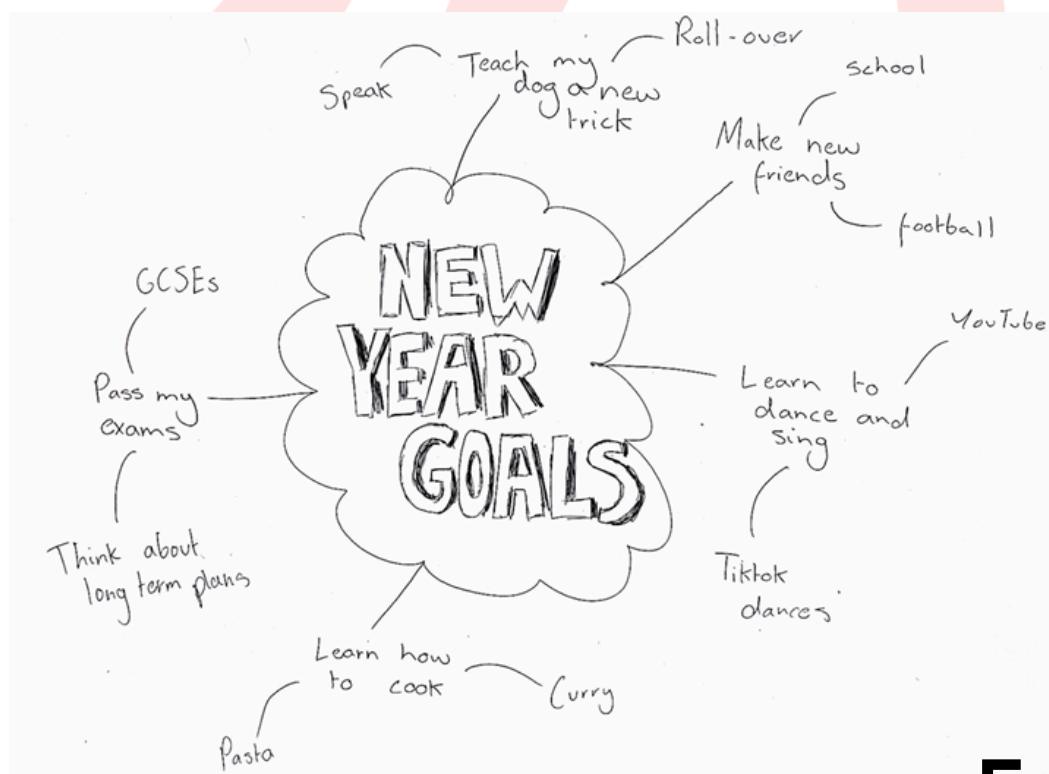 NEW
YEAR
GOALS
Teach my
dog a new
trick
Speak
Roll-over
Make new
friends
school
football
Learn to
dance and
sing
YouTube
Tiktok
dances
Learn how
to cook
Curry
Pasta
Pass my
exams
GCSEs
Think about
long term plans